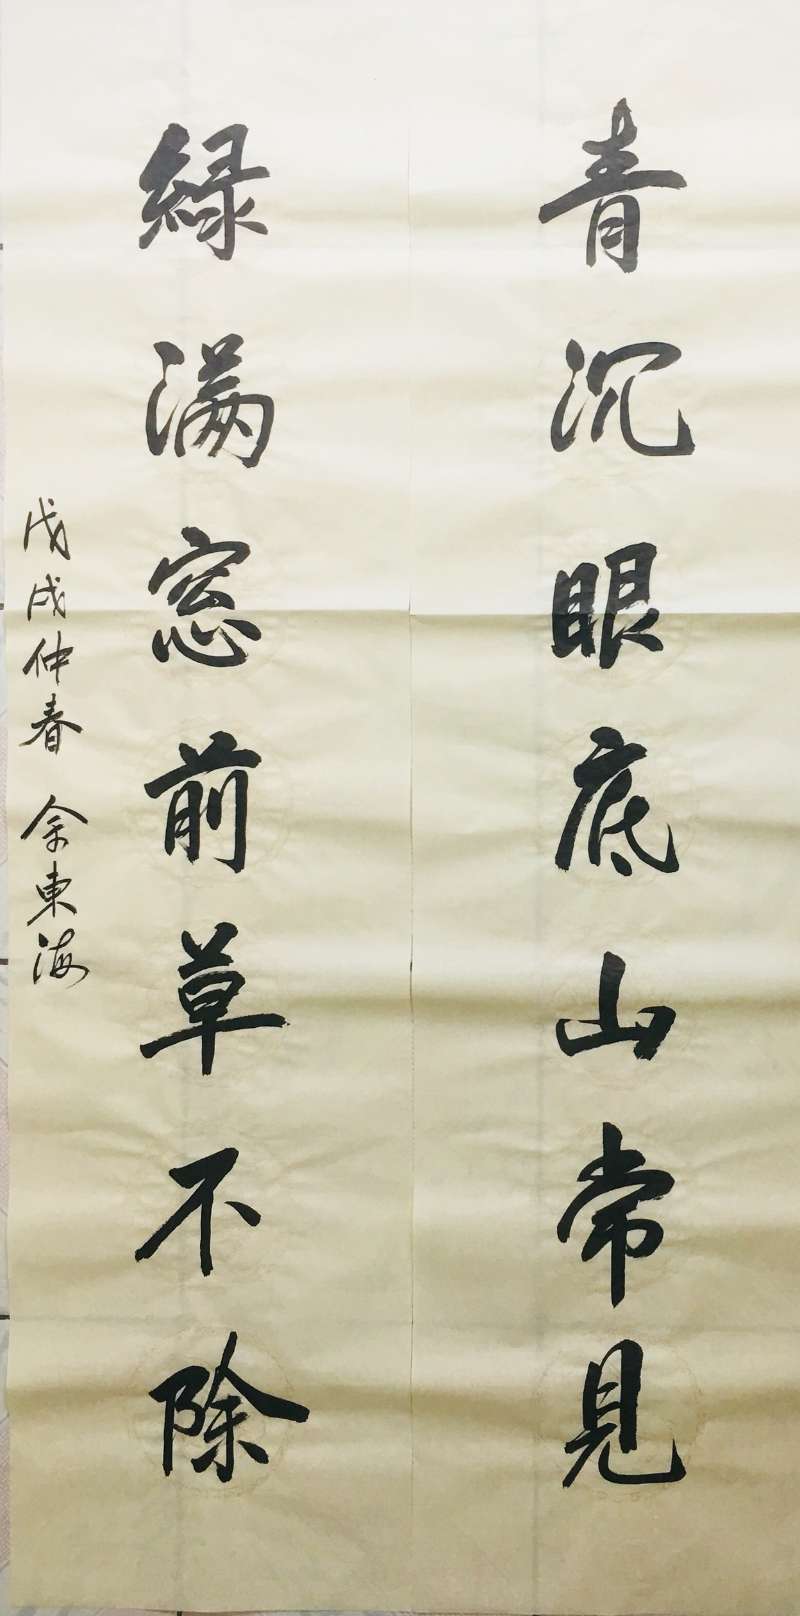 青沉眼底山常見
緑满窓前草不除
戊戌仲春 余東海